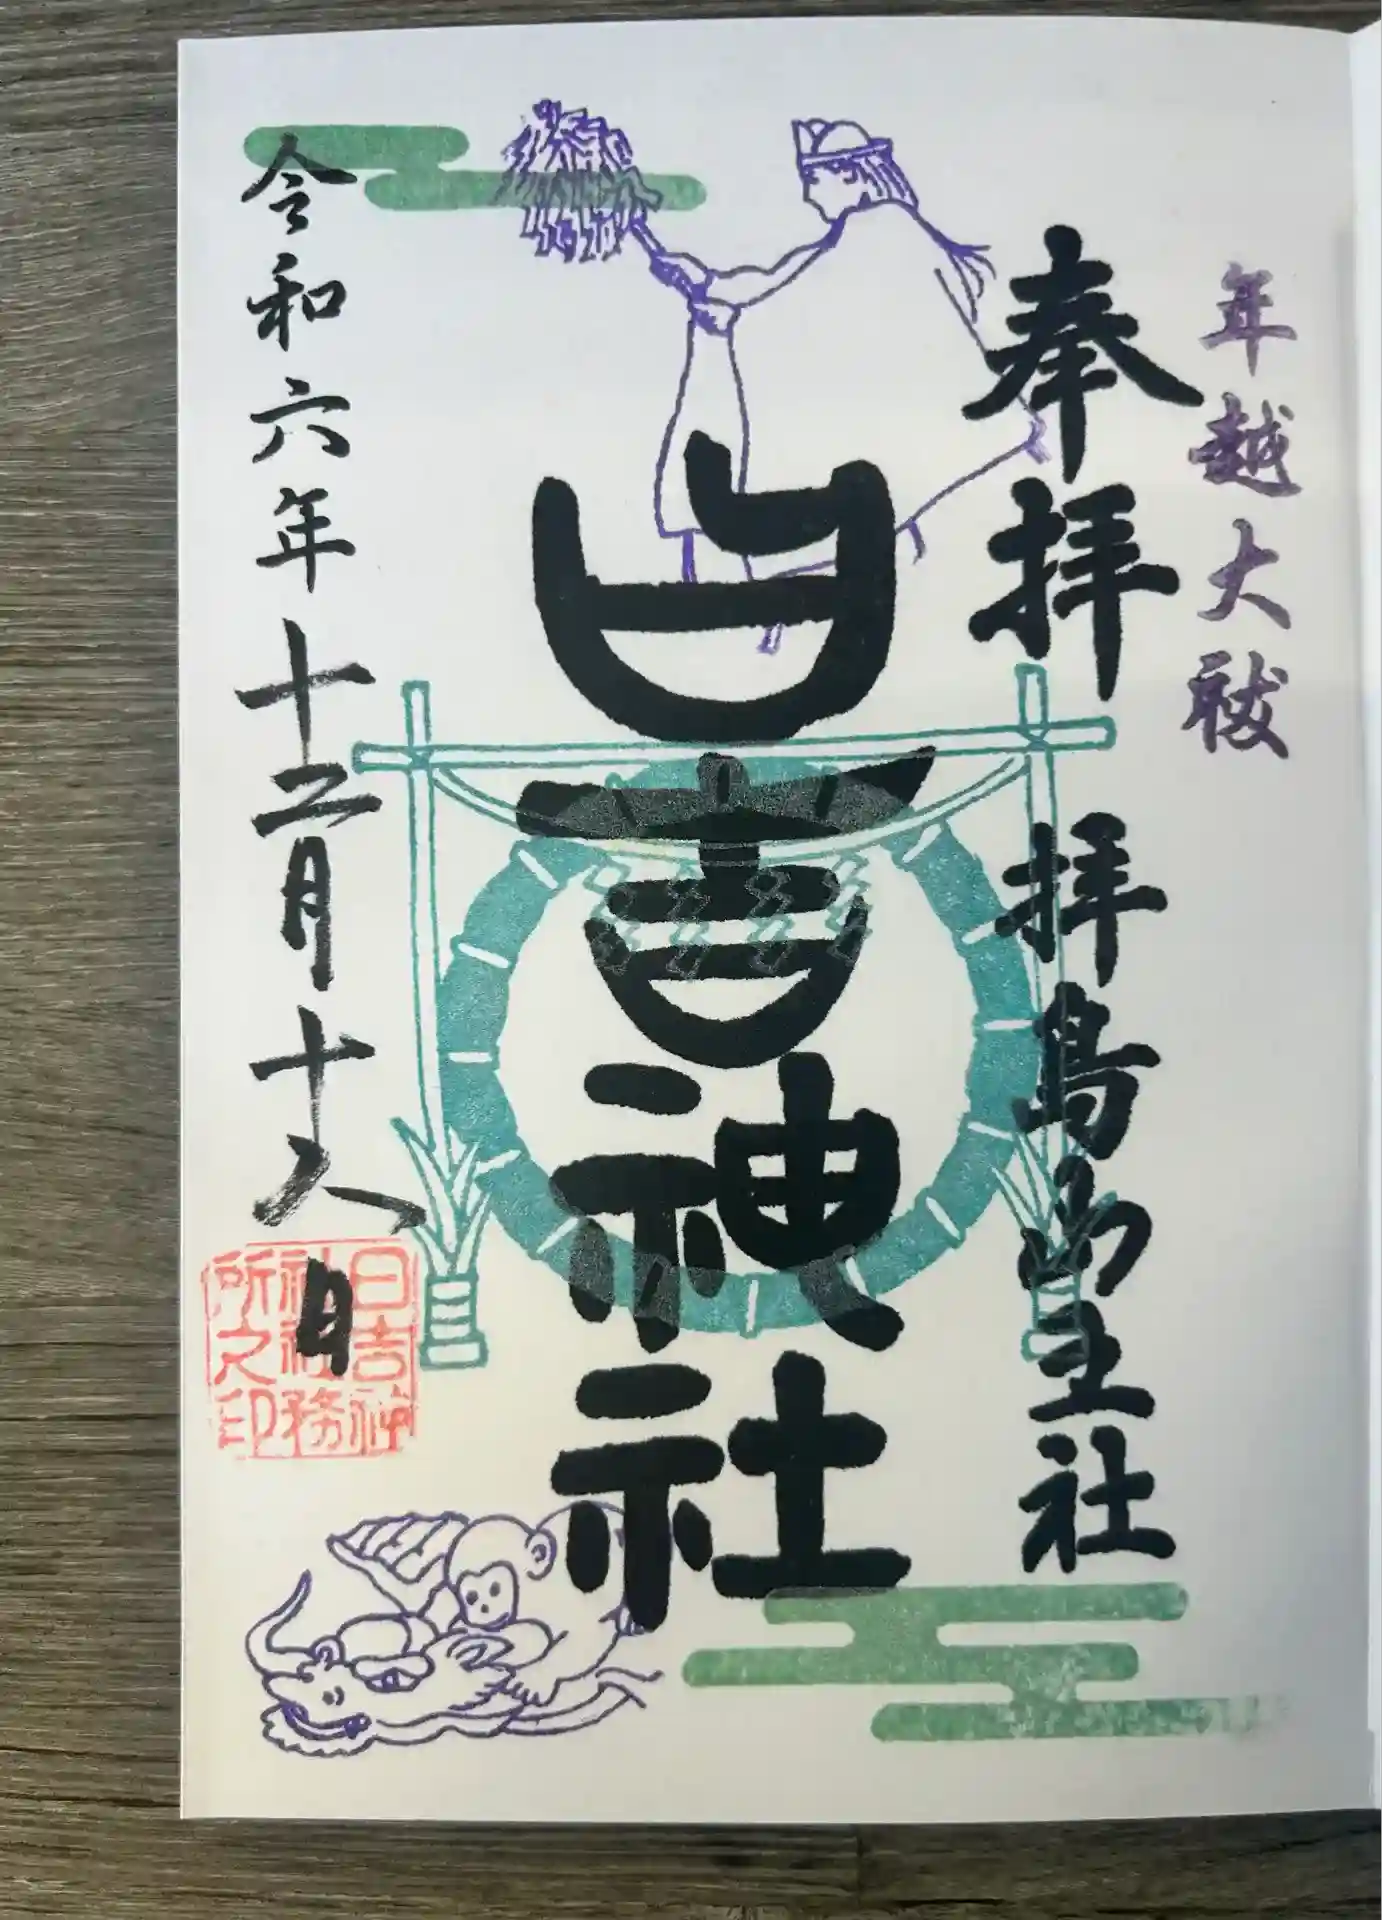 年越大祓
奉拝
拝島山王社
日吉神社
令和六年十二月十八日
日吉神
社社務
所之印